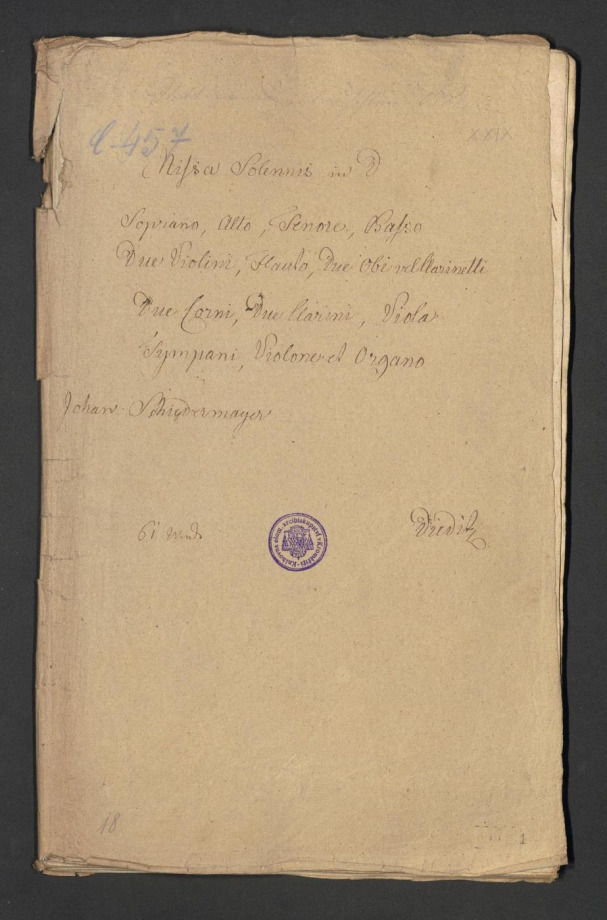 C-457
XXIX
Missa Solennis in D
Sopriano, Alto, Tenore, Basso
Due Violini, Flauto, Due Obi vel Clarinetti
Due Corni, Due Clarini, Viola
Tympani, Violone et Organo
Johan Schiedermayer
61
18
1